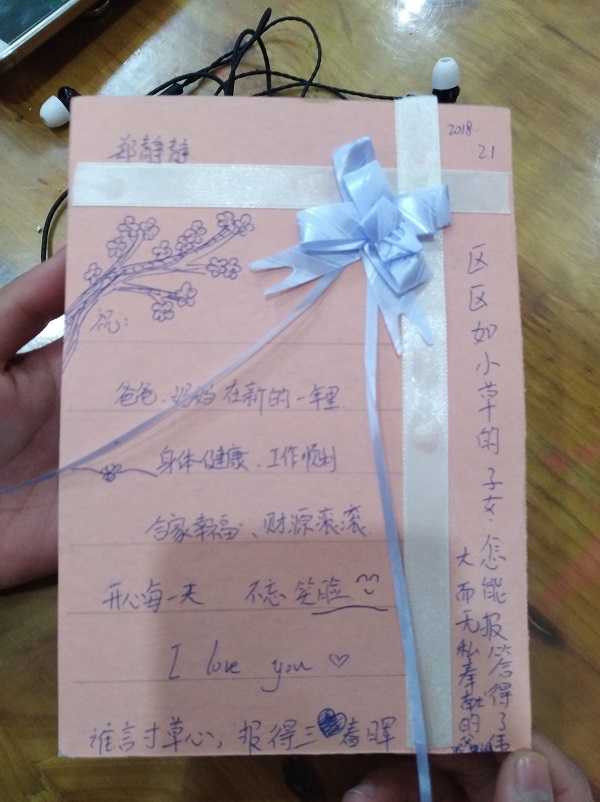 郑静静
2018.
2.1
祝:
爸爸、妈妈在新的一年里
身体健康、工作顺利
合家幸福、财源滚滚
开心每一天 不忘笑脸
I love you ♡
谁言寸草心,报得三春晖
区区如小草的子女.怎能报答得了伟
大而无私奉献的